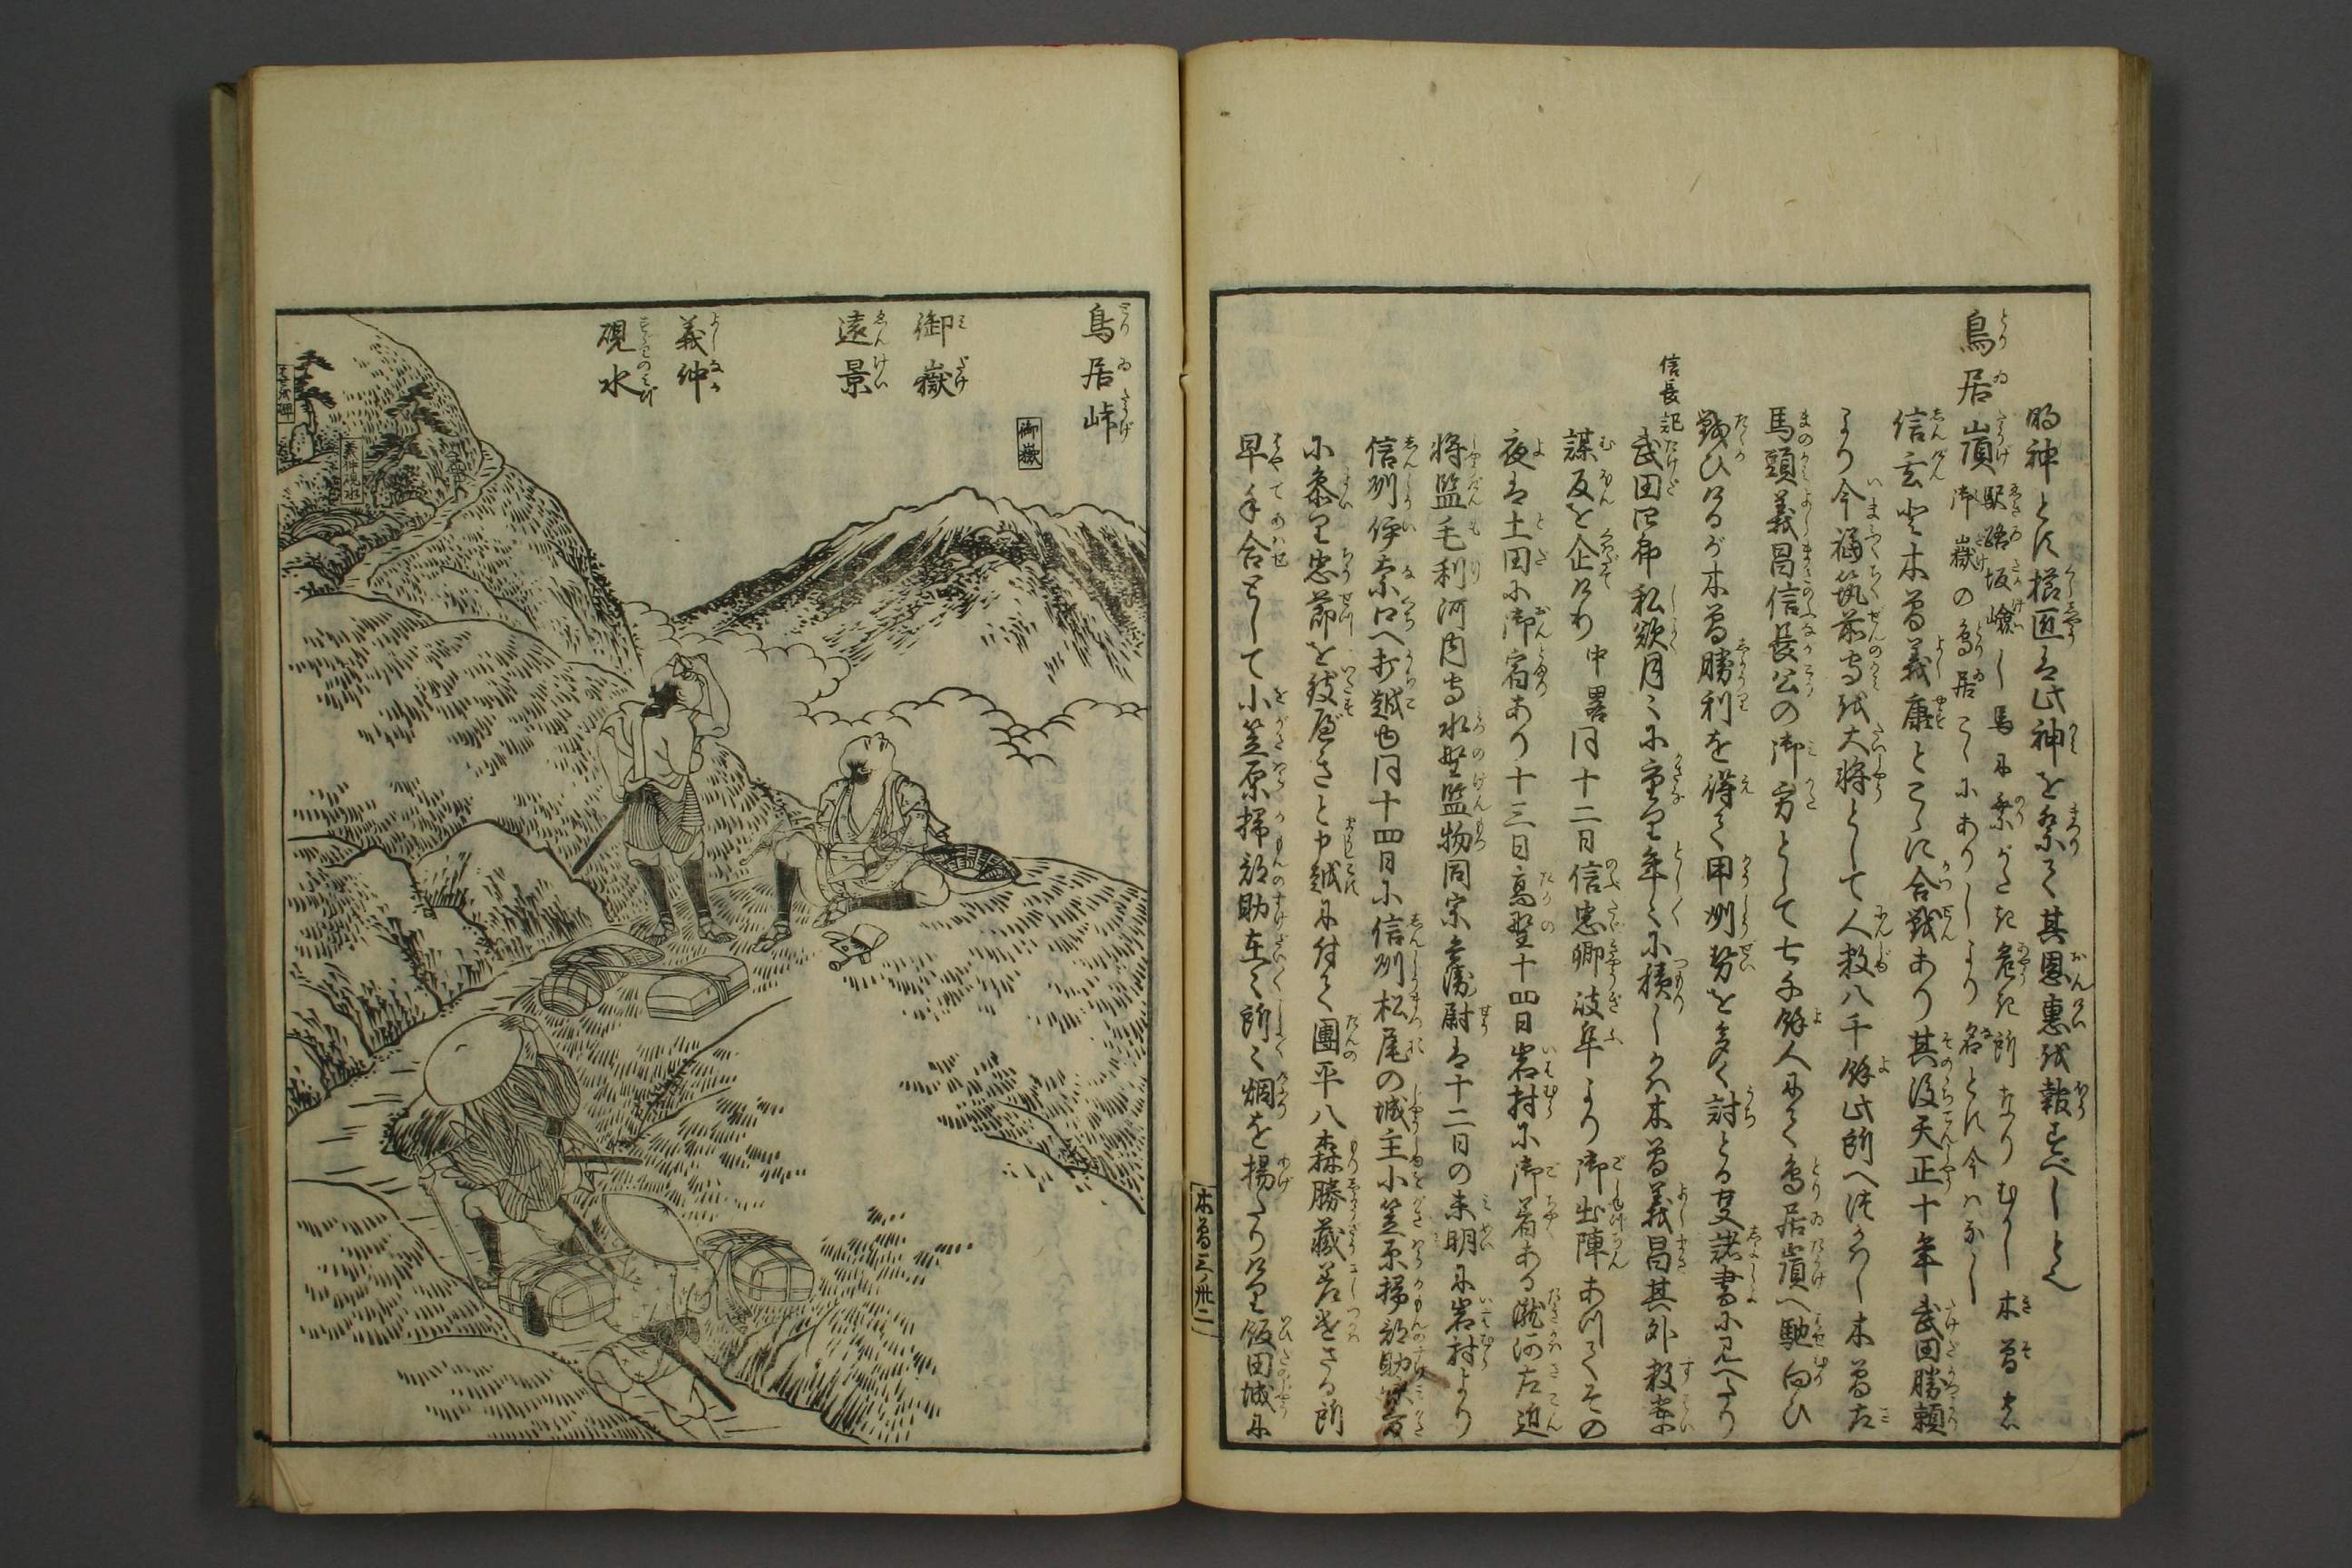 明神とす櫛匠は此神を祭て其恩恵を報ずべしとぞ
鳥居嶺 駅路坂嶮し馬に乗がたき危き所なりむかし木曽の
御嶽の鳥居こゝにありしより名とす今はなし
信玄と木曽義康とこゝに合戦あり其後天正十年武田勝頼
より今福筑前守を大将として人数八千餘此所へつかはし木曽左
馬頭義昌信長公の御方として七千餘人にて鳥居嶺へ馳向ひ
戦ひけるが木曽勝利を得て甲州勢を多く討とる支諸書に見へたり
信長記
武田四郎私欲月々に重り年々に積しかバ木曽義昌其外数輩
謀反を企けり中畧同十二日信忠卿岐阜より御出陣ありてその
夜は土田に御宿あり十三日高野十四日岩村に御着ある瀧河左近
将監毛利河内守水野監物同宗兵衛尉は十二日の未明に岩村より
信州伊奈口へ打越も同十四日に信州松尾の城主小笠原掃部助
に参り忠節を致べきと申越に付て團平八森勝蔵差遣さる所
早手合として小笠原掃部助在々所々烟を揚たりけり飯田城に
木曽三ノ卅二
鳥居峠
御嶽
御嶽
遠景
義仲
硯水
義仲硯水